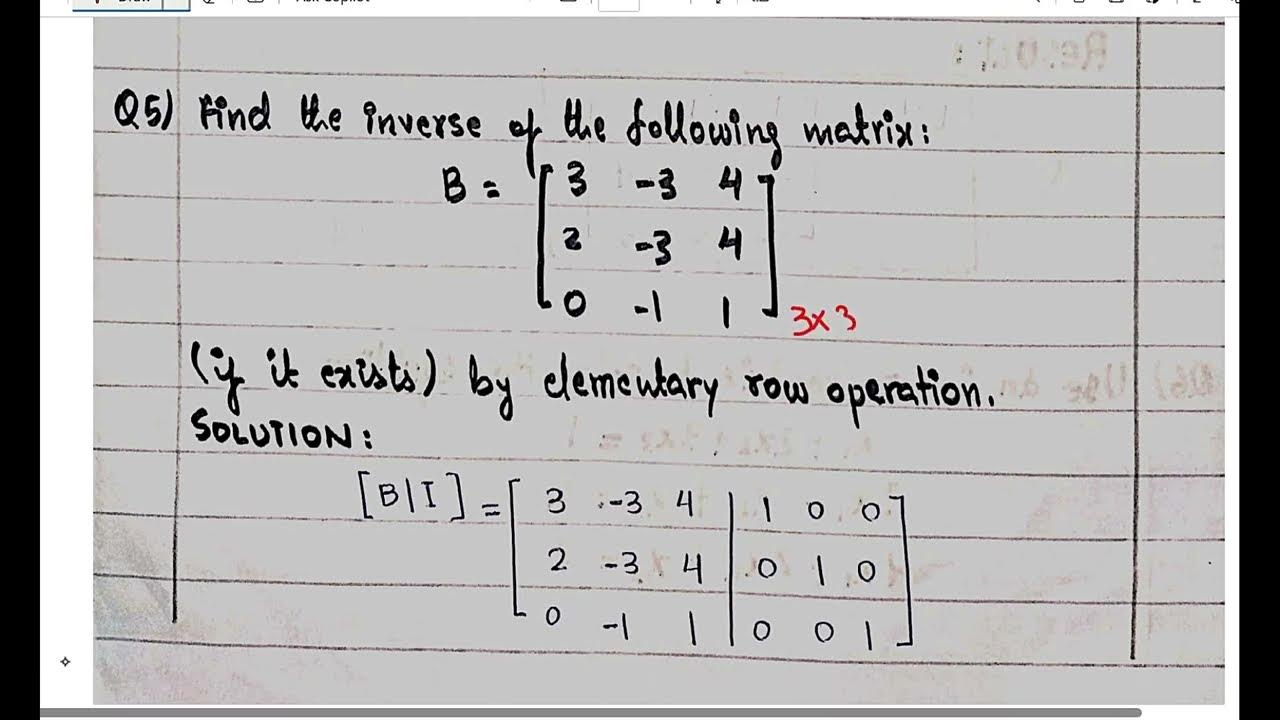 Q5) Find the inverse of the following matrix:
B = [ 3 -3 4
2 -3 4
0 -1 1 ] 3×3
(if it exists) by elementary row operation.
SOLUTION:
[B|I] = [ 3 -3 4 | 1 0 0
2 -3 4 | 0 1 0
0 -1 1 | 0 0 1 ]